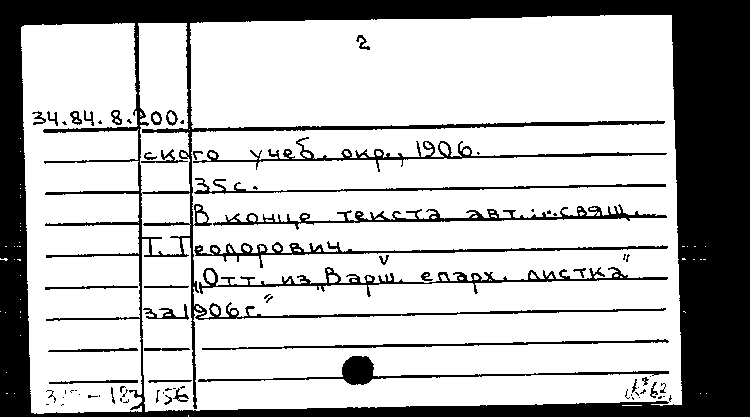 2
34.84.8.200.
ского учеб. окр., 1906.
35 с.
В конце текста авт.: свящ.
Т. Теодорович.
„Отт. из „Варш. епарх. листка"
за 1906 г."
183 156